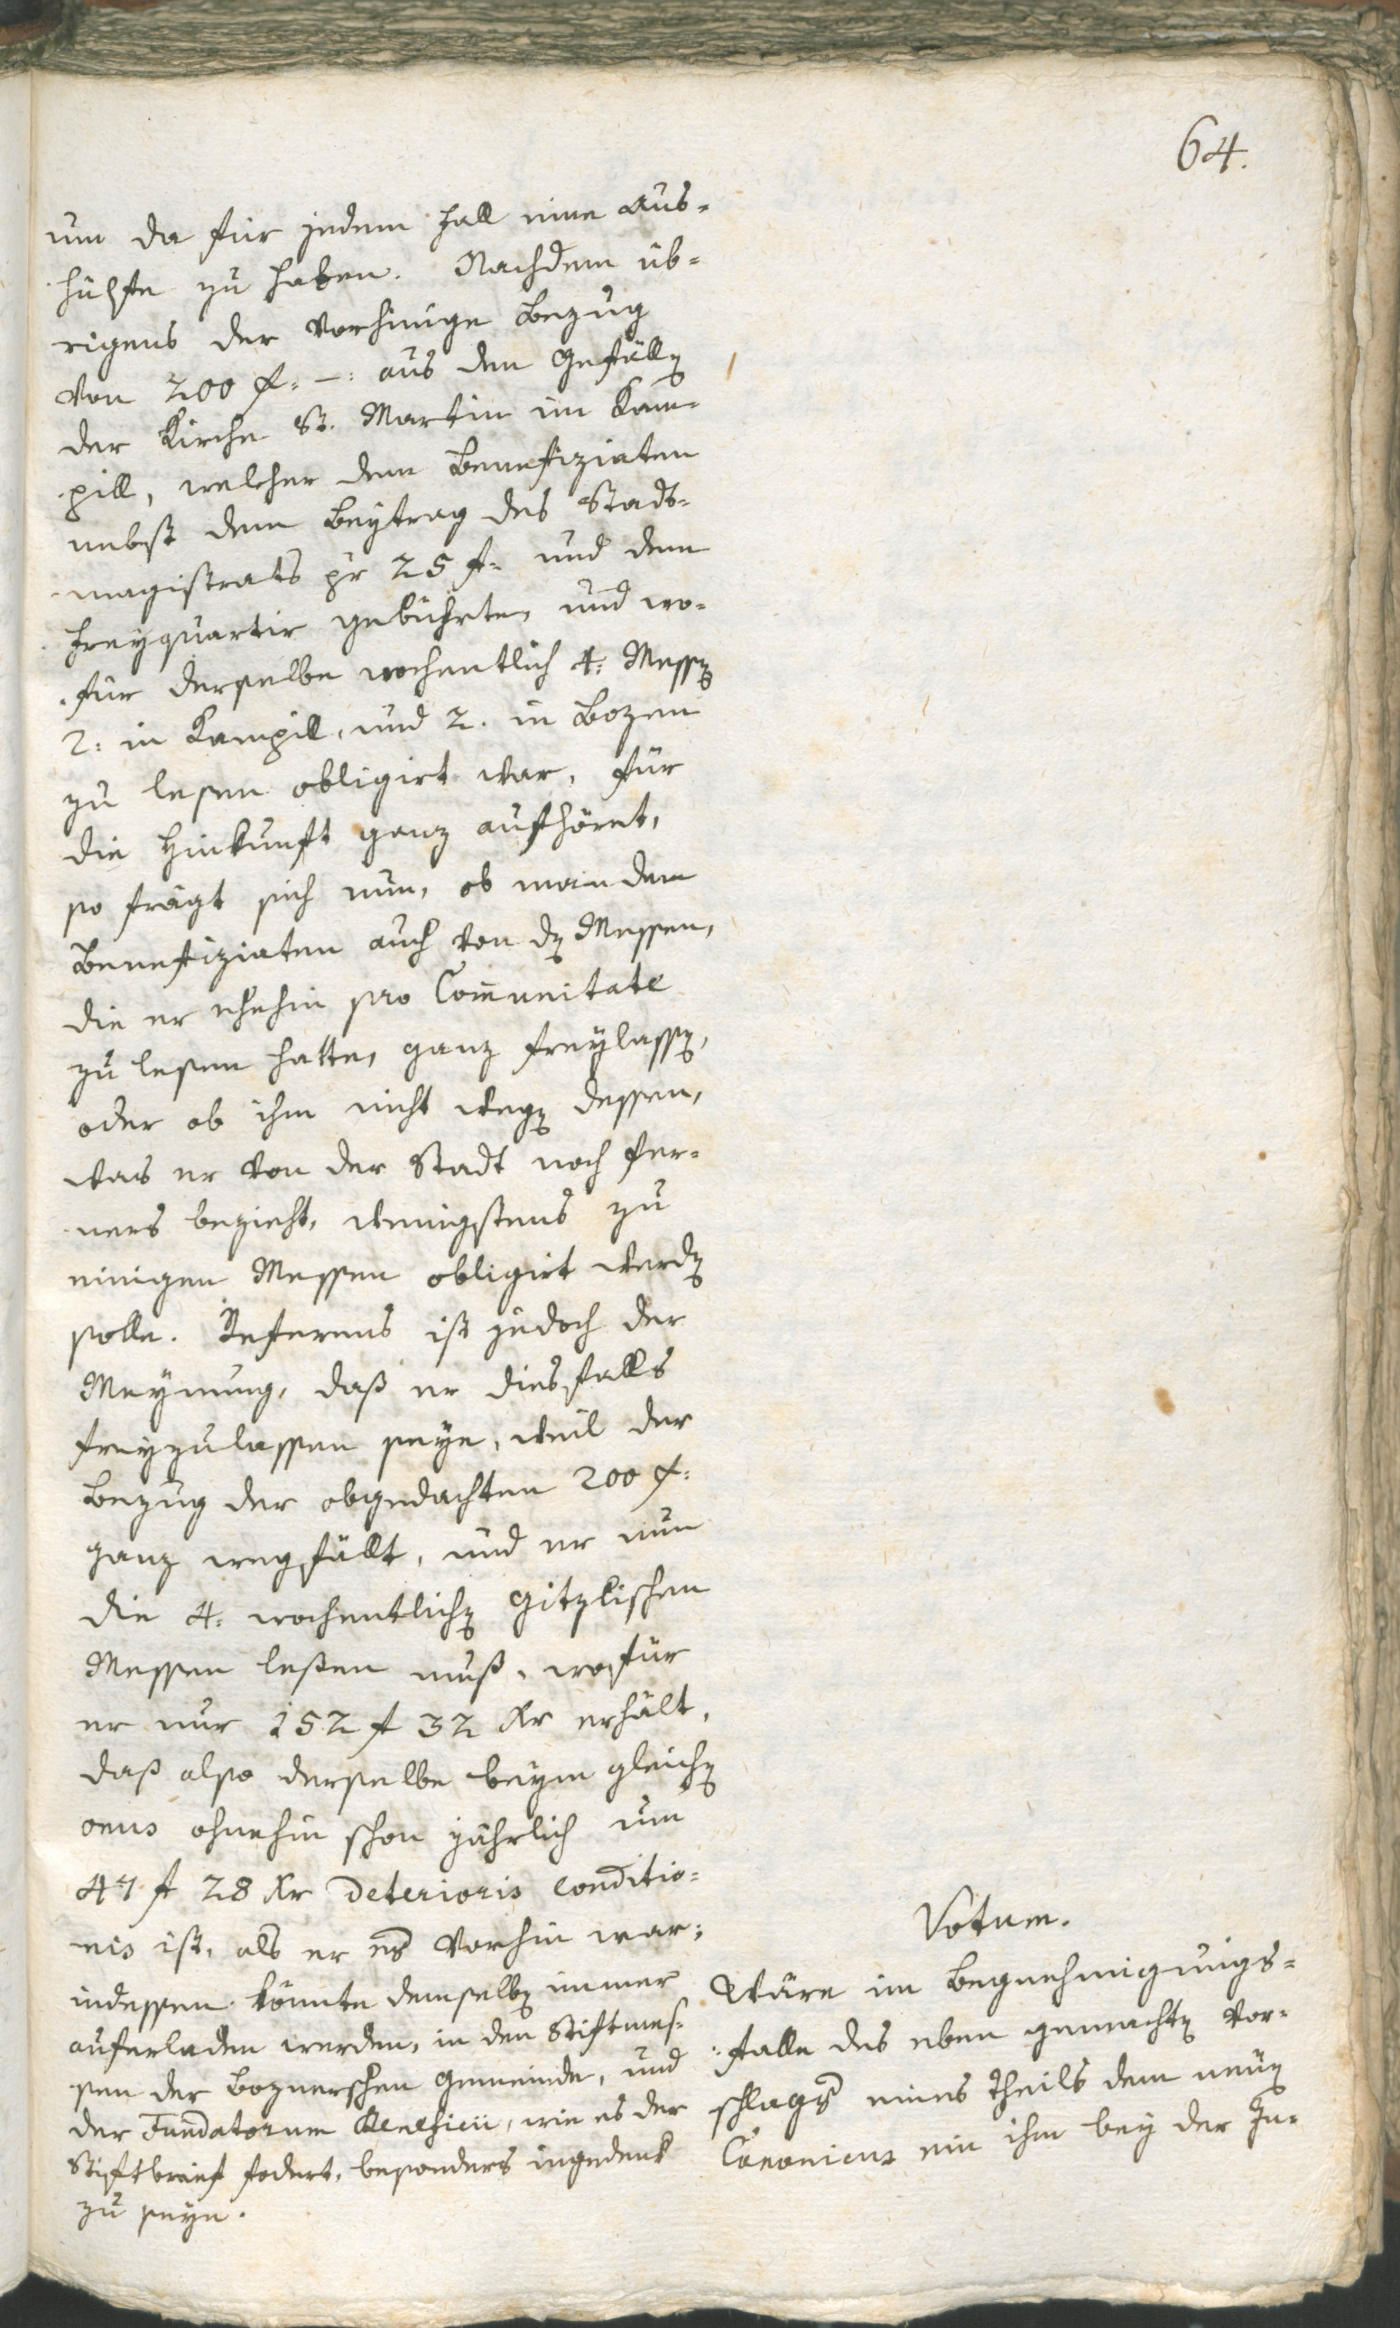 64.
um da für jedem Fall eine Aus¬
hülfte zu haben. Nachdem üb¬
rigens der vorhinnige Bezug
von 200 f: –: aus den Gefällen
der Kirche St. Martin im Kam¬
pill, welcher dem Benefiziaten
nebst dem Beytrag des Stadt¬
magistrats pr 25 f: und dem
Freyquartir gebührten, und wo¬
für derselbe wochentlich 4: Messen
2: in Kampill, und 2. in Bozen
zu lesen obligirt war, für
die Hinkunft ganz aufhöret,
so frägt sich nun, ob man dem
Benefiziaten auch von den Messen,
die er ehehin pro Communitate
zu lesen hatte, ganz freylassen,
oder ob ihm nicht wegen dessen,
was er von der Stadt noch fer¬
ners bezieht, wenigstens zu
einigen Messen obligirt werden
solle. Referens ist jedoch der
Meynung, daß er diesfalls
freyzulassen seye, weil der
Bezug der obgedachten 200 f:
ganz wegfällt, und er nun
die 4: wochentlichen Gitzlischen
Messen leßen muß, wofür
er nur 152 f 32 Kr erhält,
daß also derselbe beym gleichen
onus ohnehin schon jährlich um
47 f 28 Kr deterioris conditio¬
nis ist, als er es vorhin war;
indessen könnte demselben immer
auferladen werden, in den Stiftmes¬
sen der Boznerschen Gemeinde, und
der Fundatorum Beneficii, wie es der
Stiftbrief fodert, besonders ingedenk
zu seyn.
Votum.
Wäre im Begnehmigungs¬
falle des eben gemachten Vor¬
schlags eines Theils dem neuen
Canonicus ein ihm bey der In¬